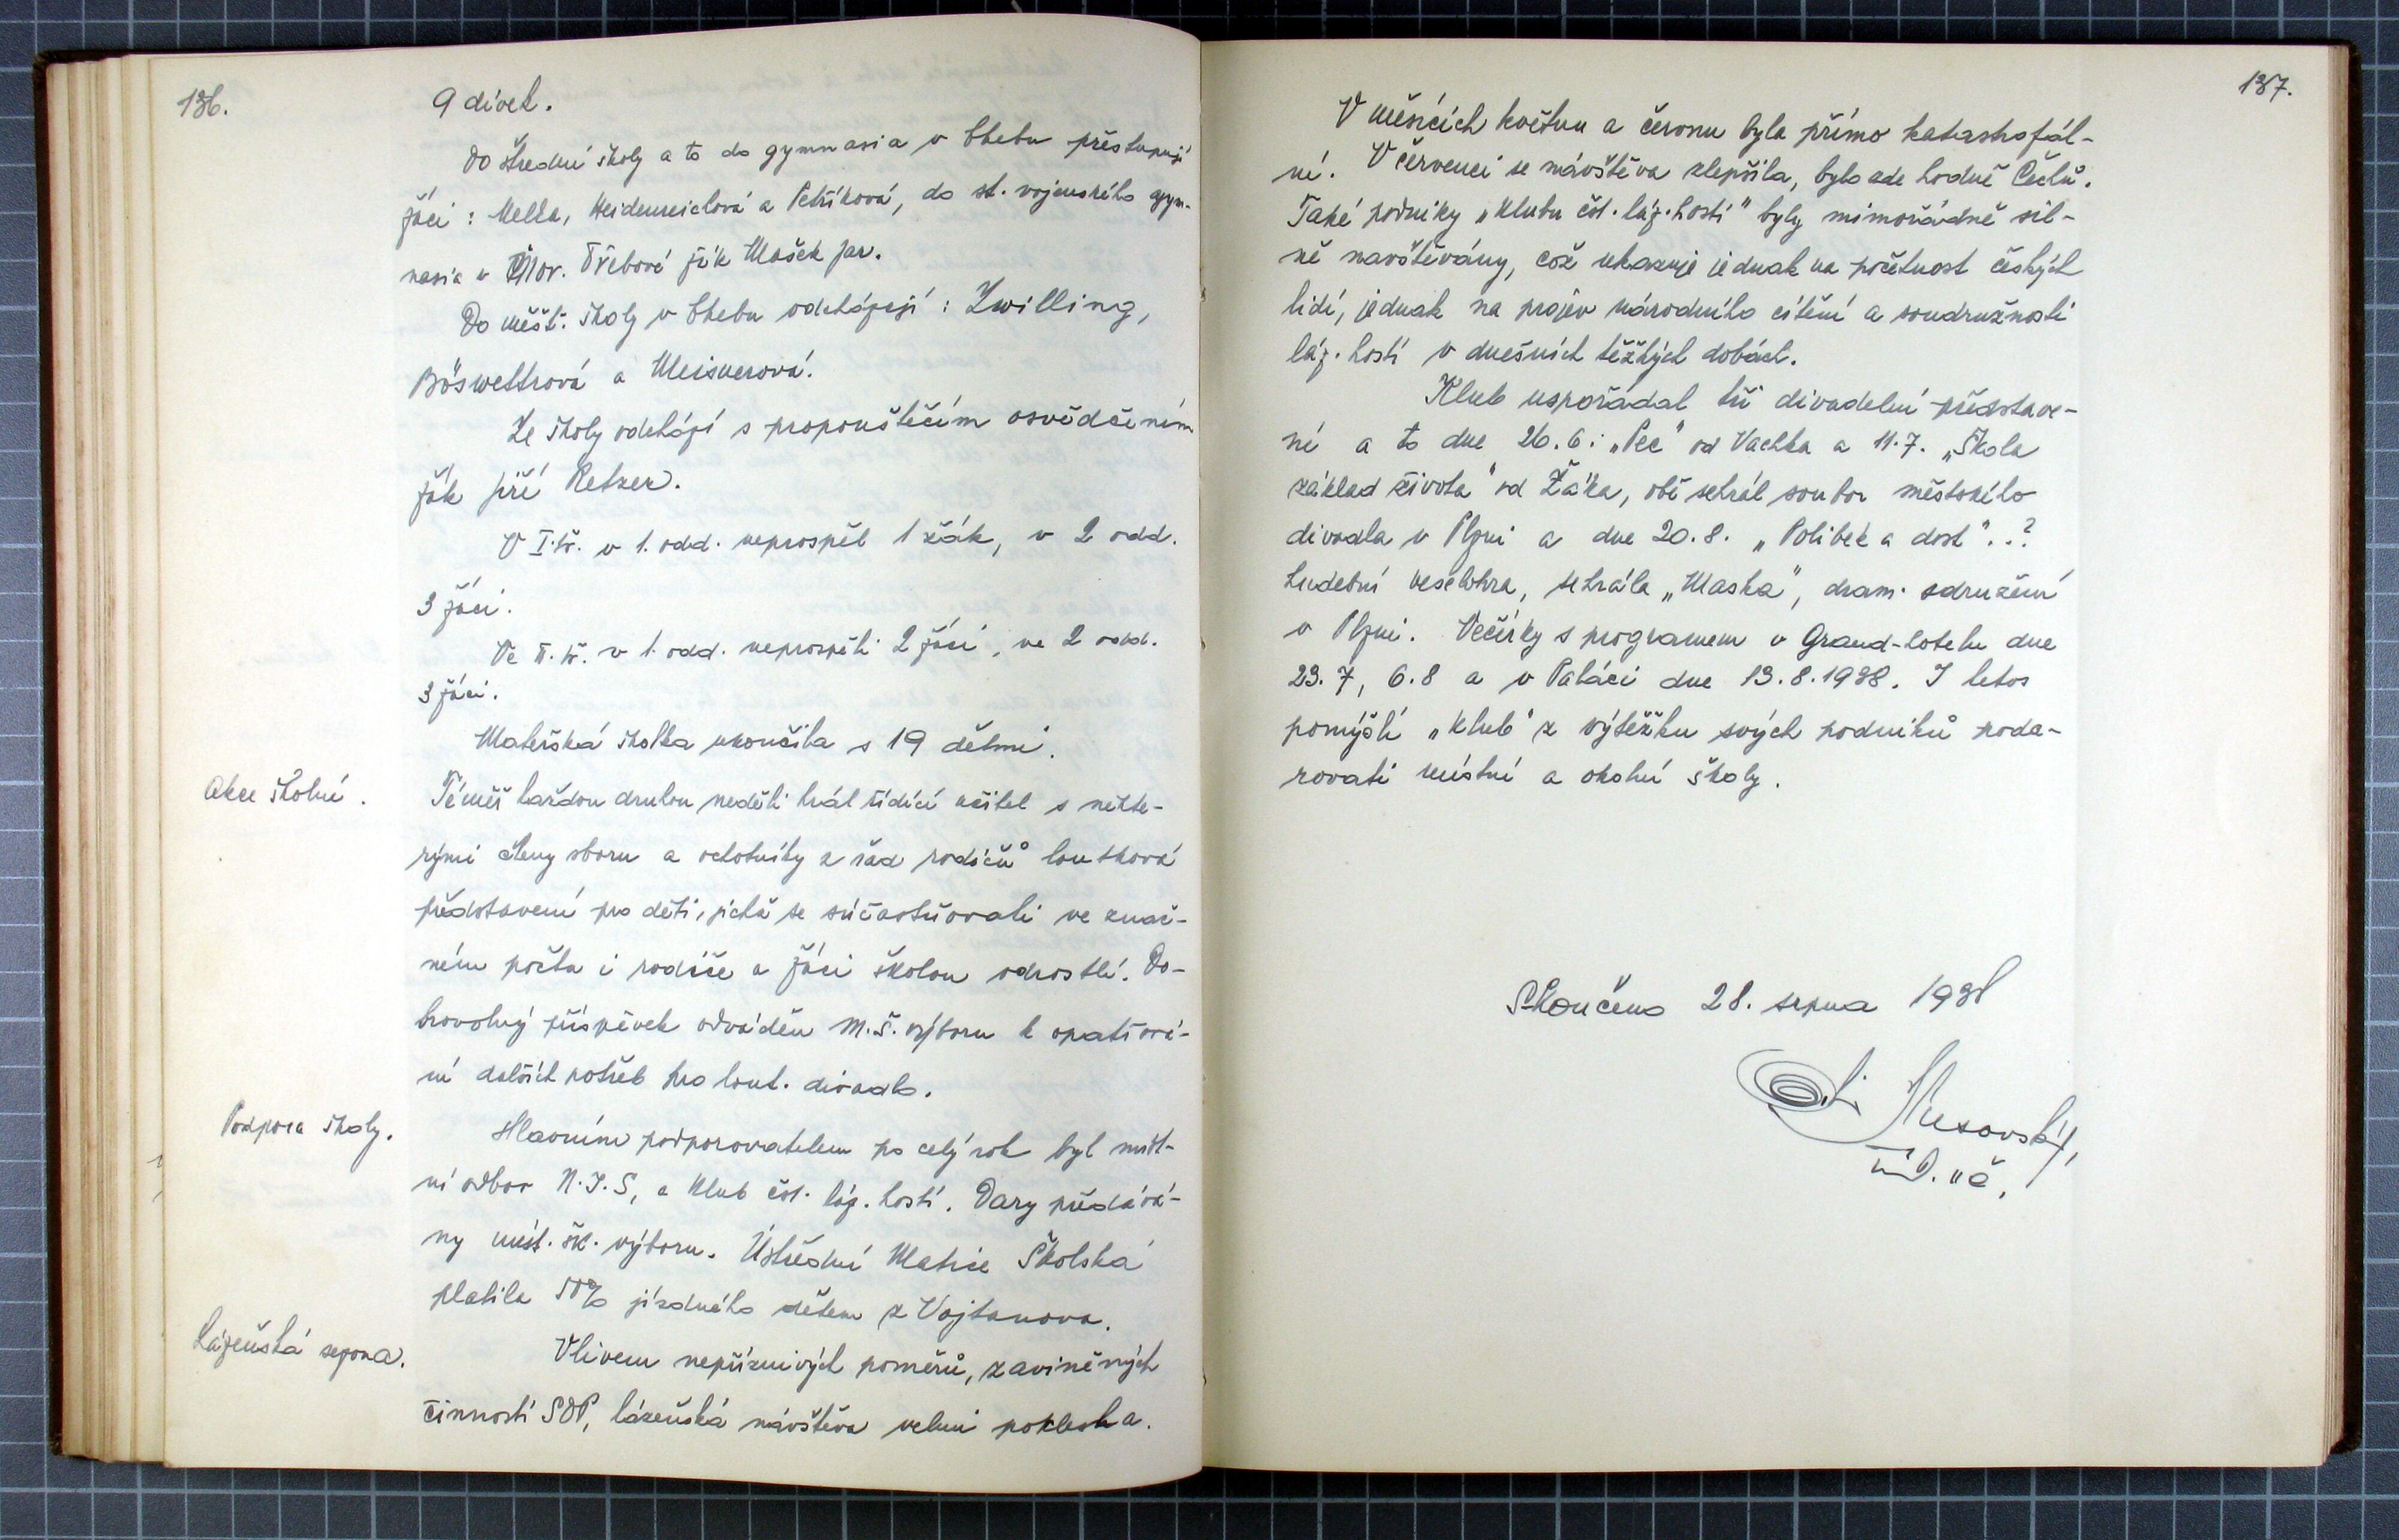 136.
9 dívek.
Do střední školy a to do gymnasia v Chebu přestupují
žáci: Mella, Heidenreichová a Petříková, do st. vojenského gym-
nasia v Mor. Třebové žák Mašek Jar.
Do měšť. školy v Chebu odcházejí: Zwilling,
Böswettrová a Meisnerová.
Ze školy odchází s propouštěcím osvědčením
žák Jiří Retzer.
V I. tř. v 1. odd. neprospěl 1 žák, v 2 odd.
3 žáci.
Ve II. tř. v 1. odd. neprospěli 2 žáci, ve 2 odd.
3 žáci.
Mateřská školka ukončila s 19 dětmi.
Akce školní.
Téměř každou druhou neděli hrál řídící učitel s někte-
rými členy sboru a ochotníky z řad rodičů loutková
představení pro děti, jichž se súčastňovali ve znač-
ném počtu i rodiče a žáci školou odrostlí. Do-
brovolný příspěvek odváděn M.Š. výboru k opatřová-
ní dalších potřeb pro lout. divadlo.
Podpora školy.
Hlavním podporovatelem po celý rok byl míst-
ní odbor N.J.S, a Klub čsl. láz. hostí. Dary předává-
ny míst. šk. výboru. Ústřední Matice Školská
platila 50% jízdného dětem z Vojtanova.
Lázeňská sezona.
Vlivem nepříznivých poměrů, zaviněných
činností SDP, lázeňská návštěva velmi poklesla.
137.
V měsících květnu a červnu byla přímo katastrofál-
ní. V červenci se návštěva zlepšila, bylo zde hodně Čechů.
Také podniky „Klubu čsl. láz. hostí" byly mimořádně sil-
ně navštěvány, což ukazuje jednak na početnost českých
lidí, jednak na projev národního cítění a soudružnosti
láz. hostí v dnešních těžkých dobách.
Klub uspořádal tři divadelní představe-
ní a to dne 26.6.: „Pec" od Vachka a 11.7. „Škola
základ života" od Žáka, obě sehrál soubor městského
divadla v Plzni a dne 20.8. „Polibek a dost"..?
hudební veselohra, sehrála „Maska", dram. sdružení
v Plzni. Večírky s programem v Grand-hotelu dne
23.7, 6.8 a v Paláci dne 13.8.1938. I letos
pomýšlí „Klub" z výtěžku svých podniků poda-
rovati místní a okolní školy.
Skončeno 28. srpna 1938
říd. uč.